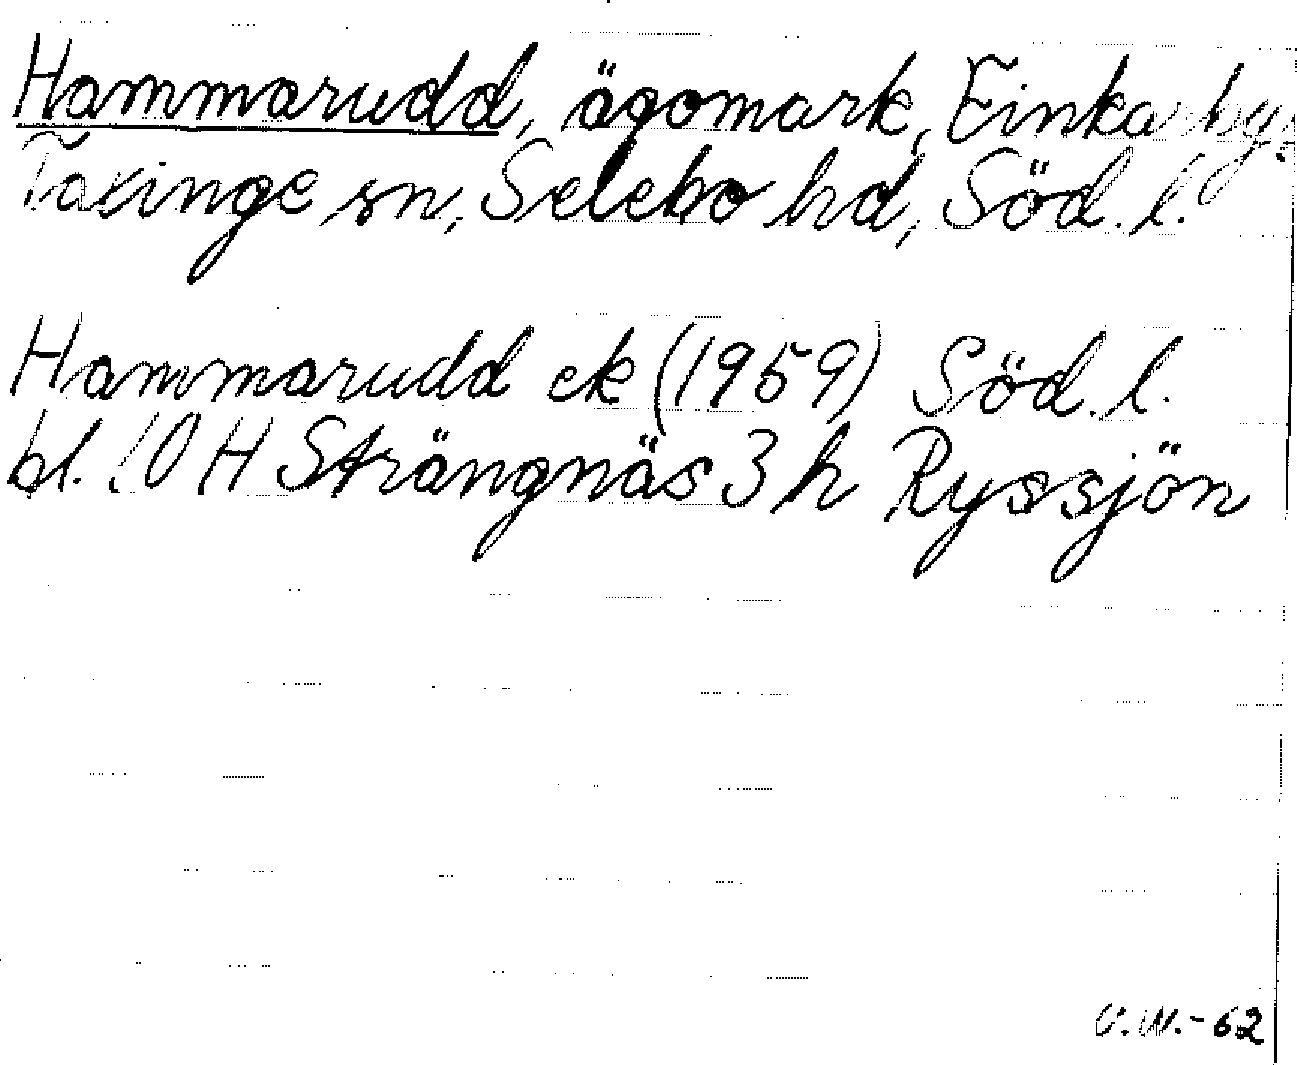 Hammarudd, ägomark, Finkarby,
Taxinge sn, Selebo hd, Söd. l.
Hammarudd ek (1959) Söd. l.
bl. 10 H Strängnäs 3 h Ryssjön
-62